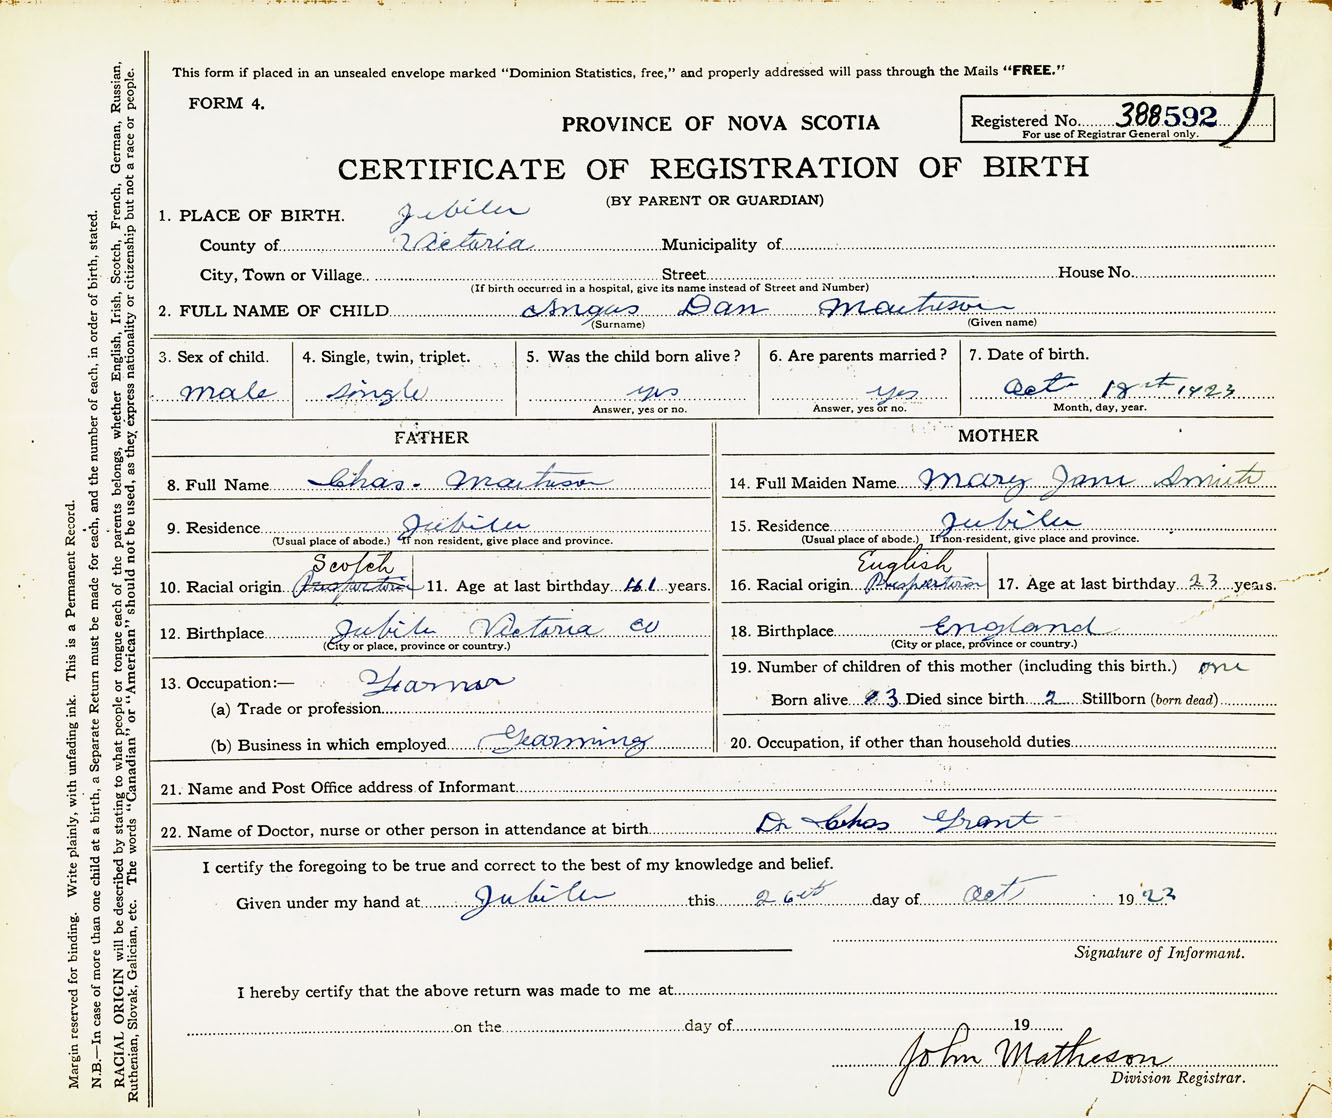 This form if placed in an unsealed envelope marked "Dominion Statistics, free," and properly addressed will pass through the Mails "FREE."
FORM 4.
PROVINCE OF NOVA SCOTIA
Registered No. 388592
For use of Registrar General only.
CERTIFICATE OF REGISTRATION OF BIRTH
(BY PARENT OR GUARDIAN)
1. PLACE OF BIRTH. Jubilee
County of Victoria Municipality of
City, Town or Village Street House No.
(If birth occurred in a hospital, give its name instead of Street and Number)
2. FULL NAME OF CHILD Angus Dan Matheson
(Surname) (Given name)
3. Sex of child. 4. Single, twin, triplet. 5. Was the child born alive? 6. Are parents married? 7. Date of birth.
male single yes yes Oct 18th 1923
Answer, yes or no. Answer, yes or no. Month, day, year.
FATHER
8. Full Name Chas. Matheson
9. Residence Jubilee
(Usual place of abode.) If non resident, give place and province.
Scotch
10. Racial origin 11. Age at last birthday years.
12. Birthplace Jubile Victoria co
(City or place, province or country.)
13. Occupation:— Farmer
(a) Trade or profession
(b) Business in which employed Fearming
MOTHER
14. Full Maiden Name Mary Jane Smith
15. Residence Jubilee
(Usual place of abode.) If non-resident, give place and province.
English
16. Racial origin 17. Age at last birthday 23 years.
18. Birthplace England
(City or place, province or country.)
19. Number of children of this mother (including this birth.) one
Born alive 3 Died since birth 2 Stillborn (born dead)
20. Occupation, if other than household duties
21. Name and Post Office address of Informant
22. Name of Doctor, nurse or other person in attendance at birth Dr Chas Grant
I certify the foregoing to be true and correct to the best of my knowledge and belief.
Given under my hand at Jubilee this 26th day of Oct 1923
Signature of Informant.
I hereby certify that the above return was made to me at
on the day of 19
John Matheson
Division Registrar.
Margin reserved for binding. Write plainly, with unfading ink. This is a Permanent Record.
N.B.—In case of more than one child at a birth, a Separate Return must be made for each, and the number of each, in order of birth, stated.
RACIAL ORIGIN will be described by stating to what people or tongue each of the parents belongs, whether English, Irish, Scotch, French, German, Russian,
Ruthenian, Slovak, Galician, etc. The words "Canadian" or "American" should not be used, as they express nationality or citizenship but not a race or people.